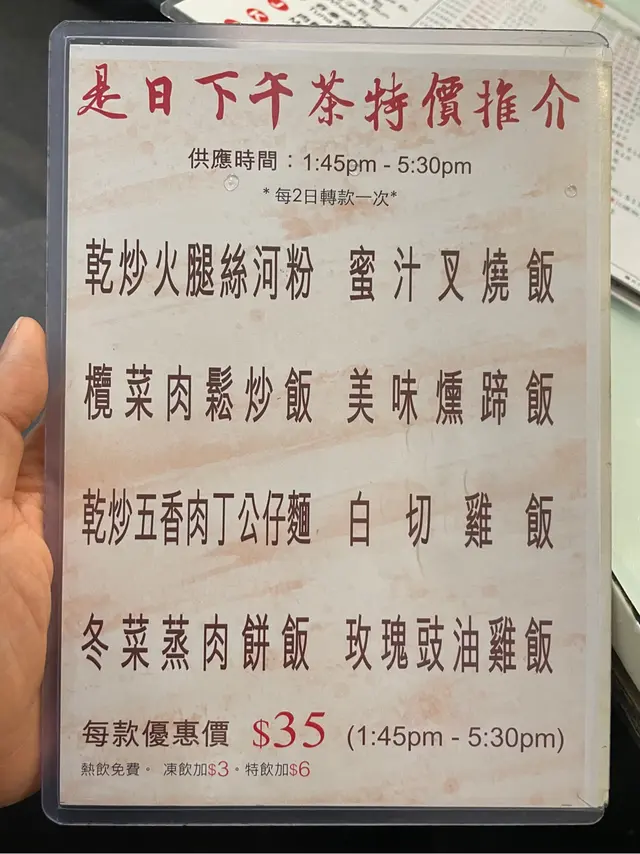 是日下午茶特價推介
供應時間：1:45pm - 5:30pm
*每2日轉款一次*
乾炒火腿絲河粉 蜜汁叉燒飯
欖菜肉鬆炒飯 美味燻蹄飯
乾炒五香肉丁公仔麵 白切雞飯
冬菜蒸肉餅飯 玫瑰豉油雞飯
每款優惠價 $35 (1:45pm - 5:30pm)
熱飲免費。凍飲加$3。特飲加$6